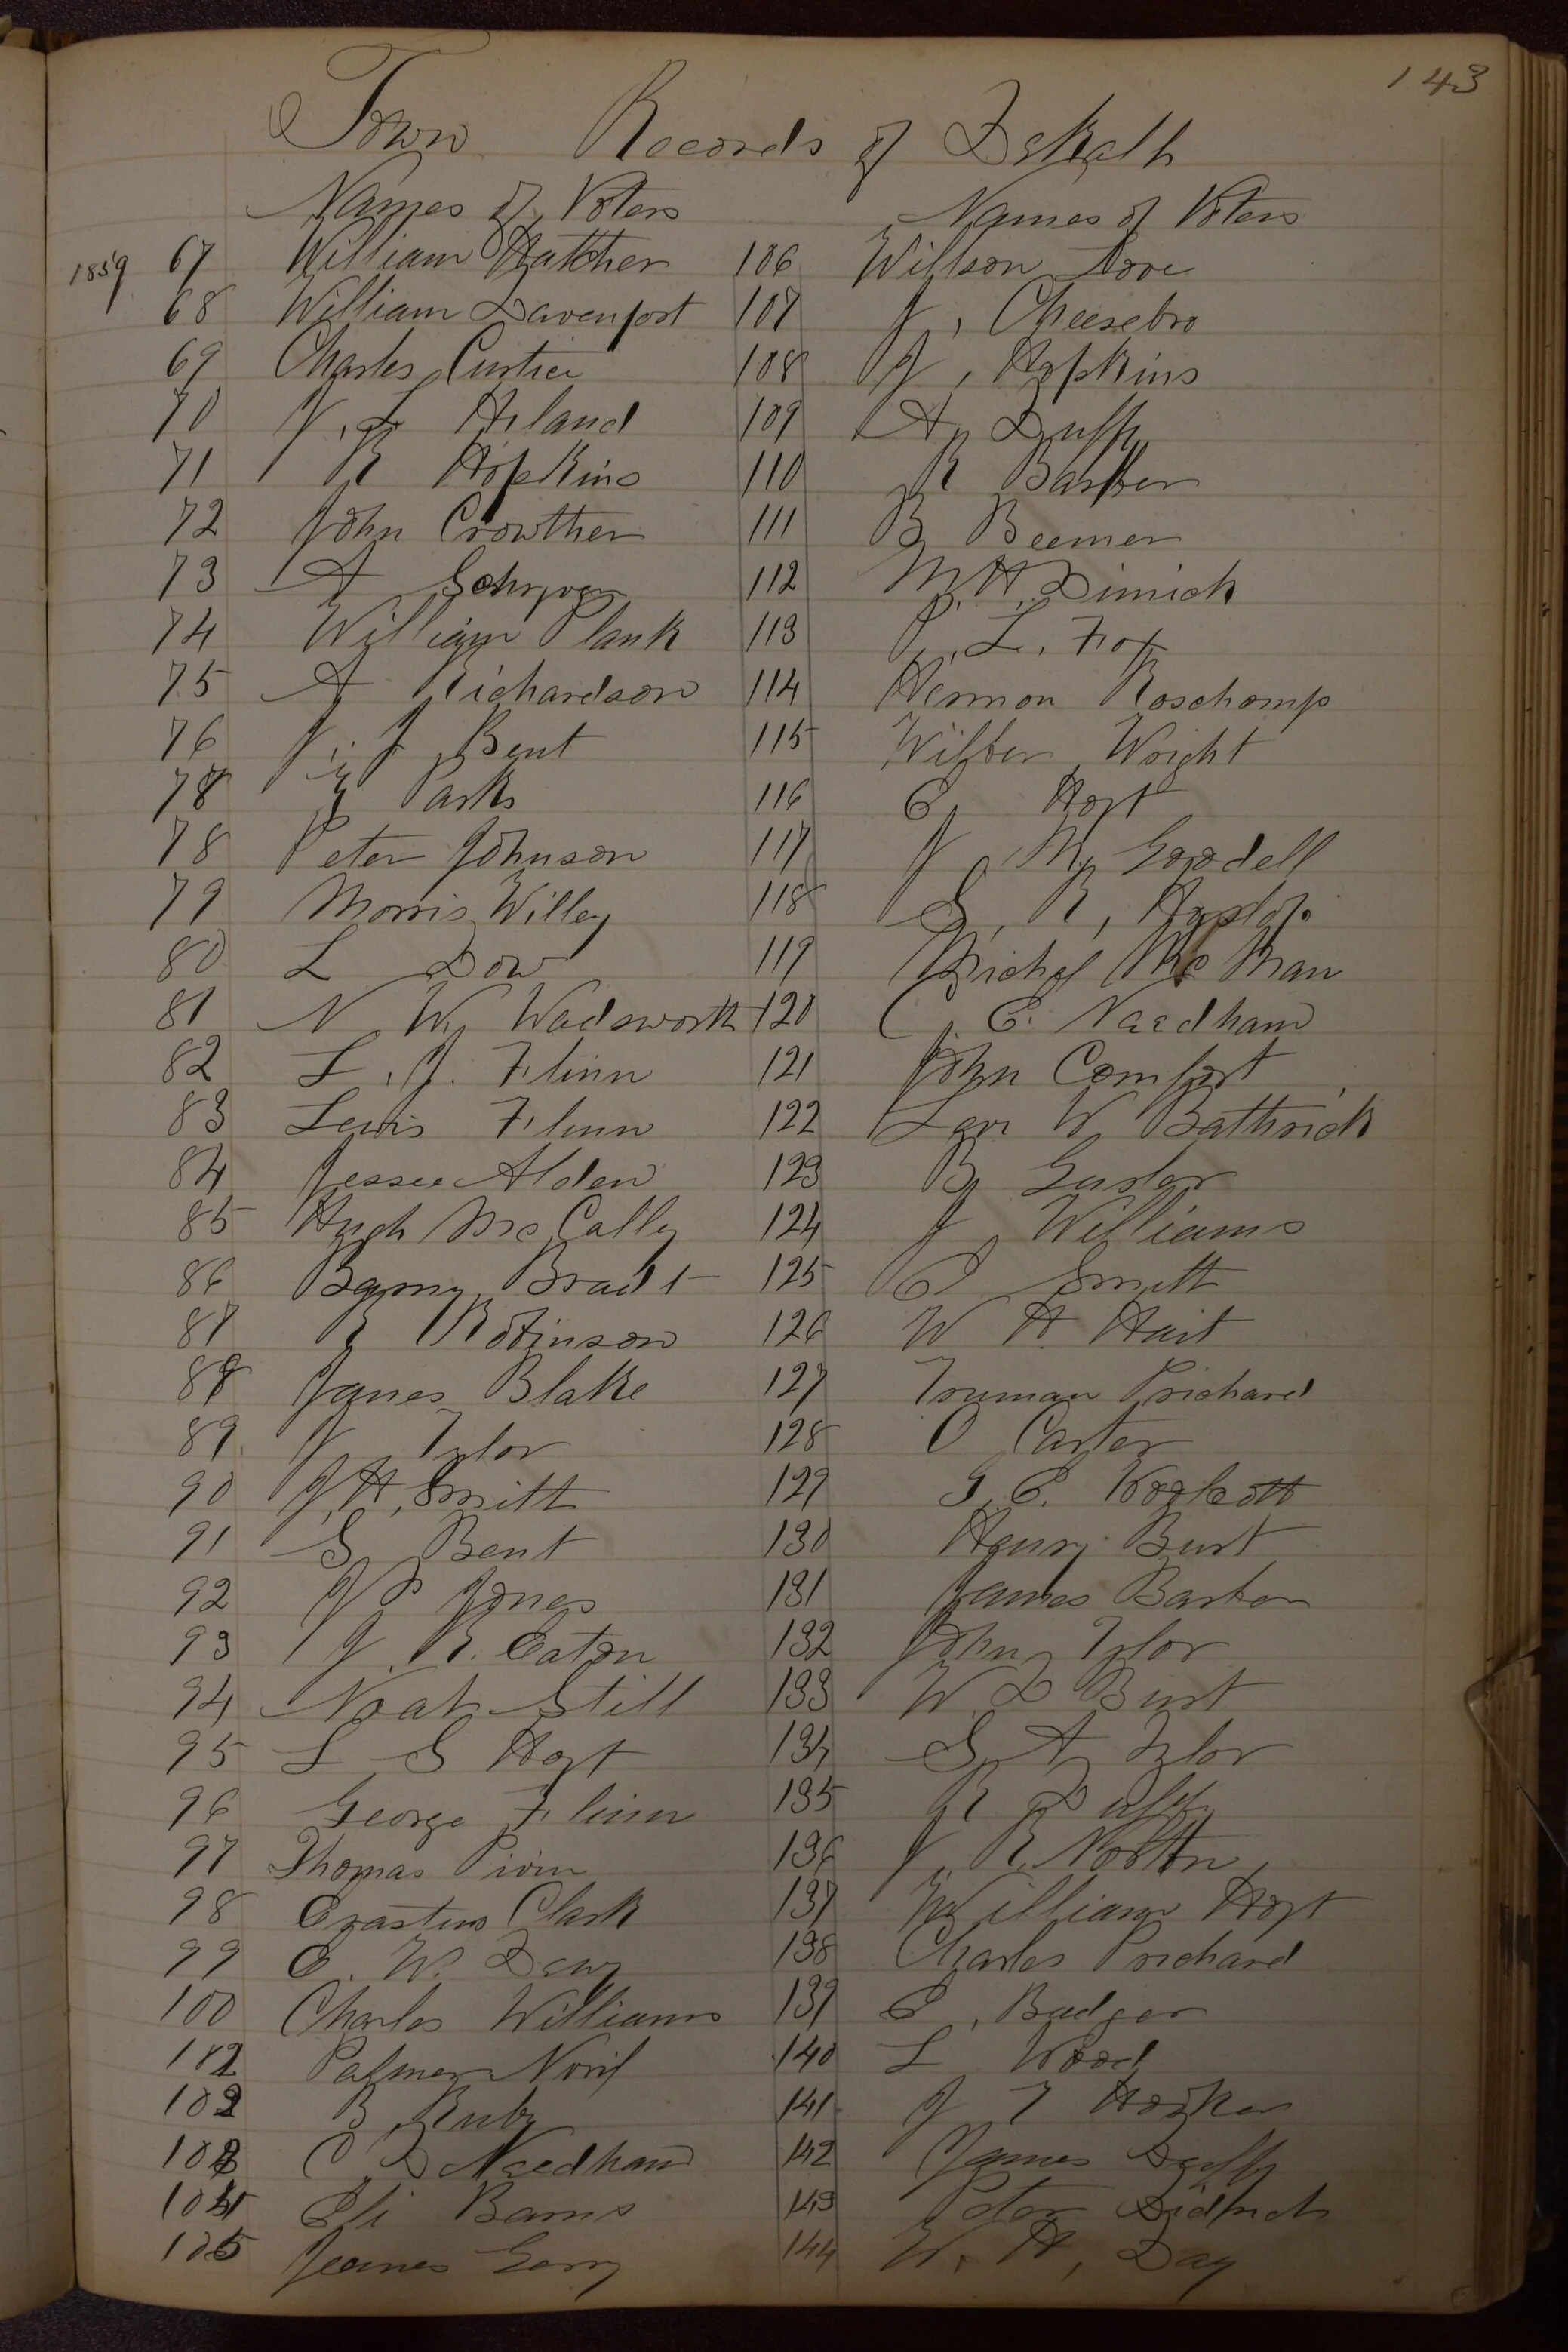 143
Town Records of Dekalb
Names of Voters
Names of Voters
1859 67 William Hatcher
68 William Davenport
69 Charles Curtice
70 J. L Hiland
71 R Hopkins
72 John Crowther
73 A Schryver
74 William Plank
75 A Richardson
76 J. J. Bent
78 Parks
78 Peter Johnson
79 Morris Willey
80 L Dow
81 N W Wadsworth
82 L. J. Flinn
83 Lewis Flinn
84 Jessee Alden
85 Hugh Mc Cally
86 Bradt
87 R Robinson
88 James Blake
89 J Tylor
90 J. H. Smith
91 S Bent
92 J P Jones
93 J. R. Eaton
94 Noah Still
95 L S Hoyt
96 George Flinn
97 Thomas
98 Erastus Clark
99 E. W.
100 Charles Williams
102 Palmer
102 B Ruby
103 C D Needham
104 Eli Barns
105 Geary
106 Willson Love
107 J. Cheesebro
108 J. Hopkins
109 A Duffy
110 R Barber
111 B Beemer
112 M. H. Dimick
113 P. L. Fox
114 Hermon Roschomp
115 Wilber Wright
116 E Hoyt
117 J M Goodell
118 S, R,
119 Michel Mc Man
120 C. E. Needham
121 John Comfort
122 Levi W Bathrick
123 B
124 J Williams
125 P Smith
126 W H. Hait
127 Truman Prichard
128 O Carter
129 G. E. Woolcott
130 Henry Burt
131 James Barber
132 John Tylor
133 W. D Burt
134 S A Tylor
135 R Duffy
136 J. R. Norton
137 William Hoyt
138 Charles Prichard
139 E, Badger
140 L Wood
141 J T Hooker
142 James Duffy
143 Peter
144 W. H, Day